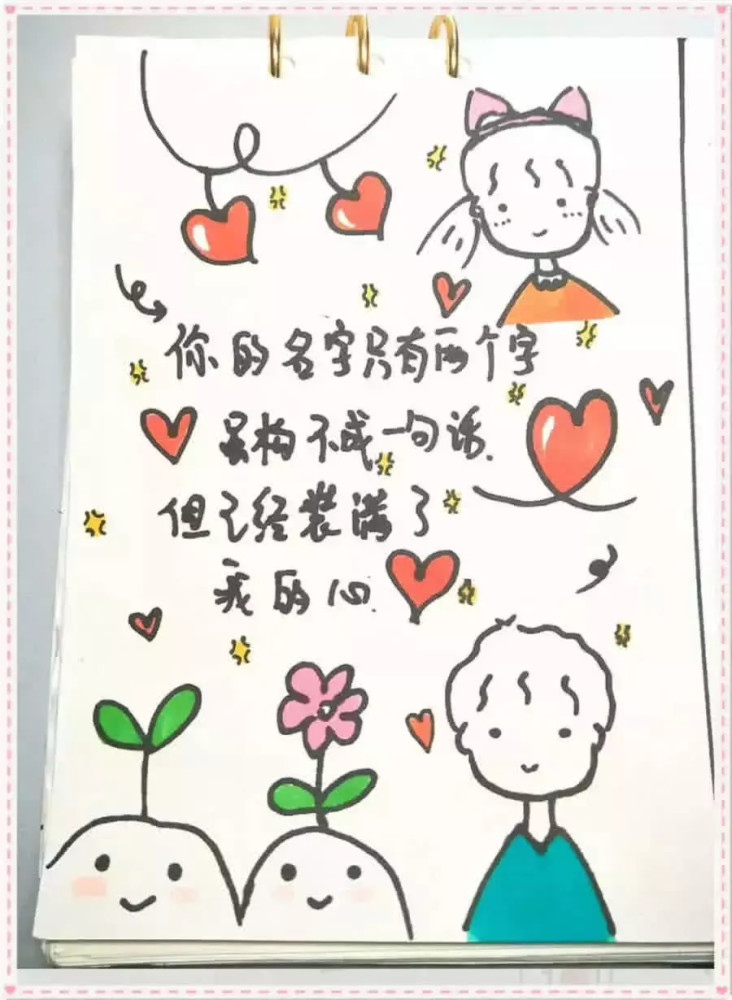 你的名字只有两个字
虽构不成一句话.
但已经装满了
我的心.